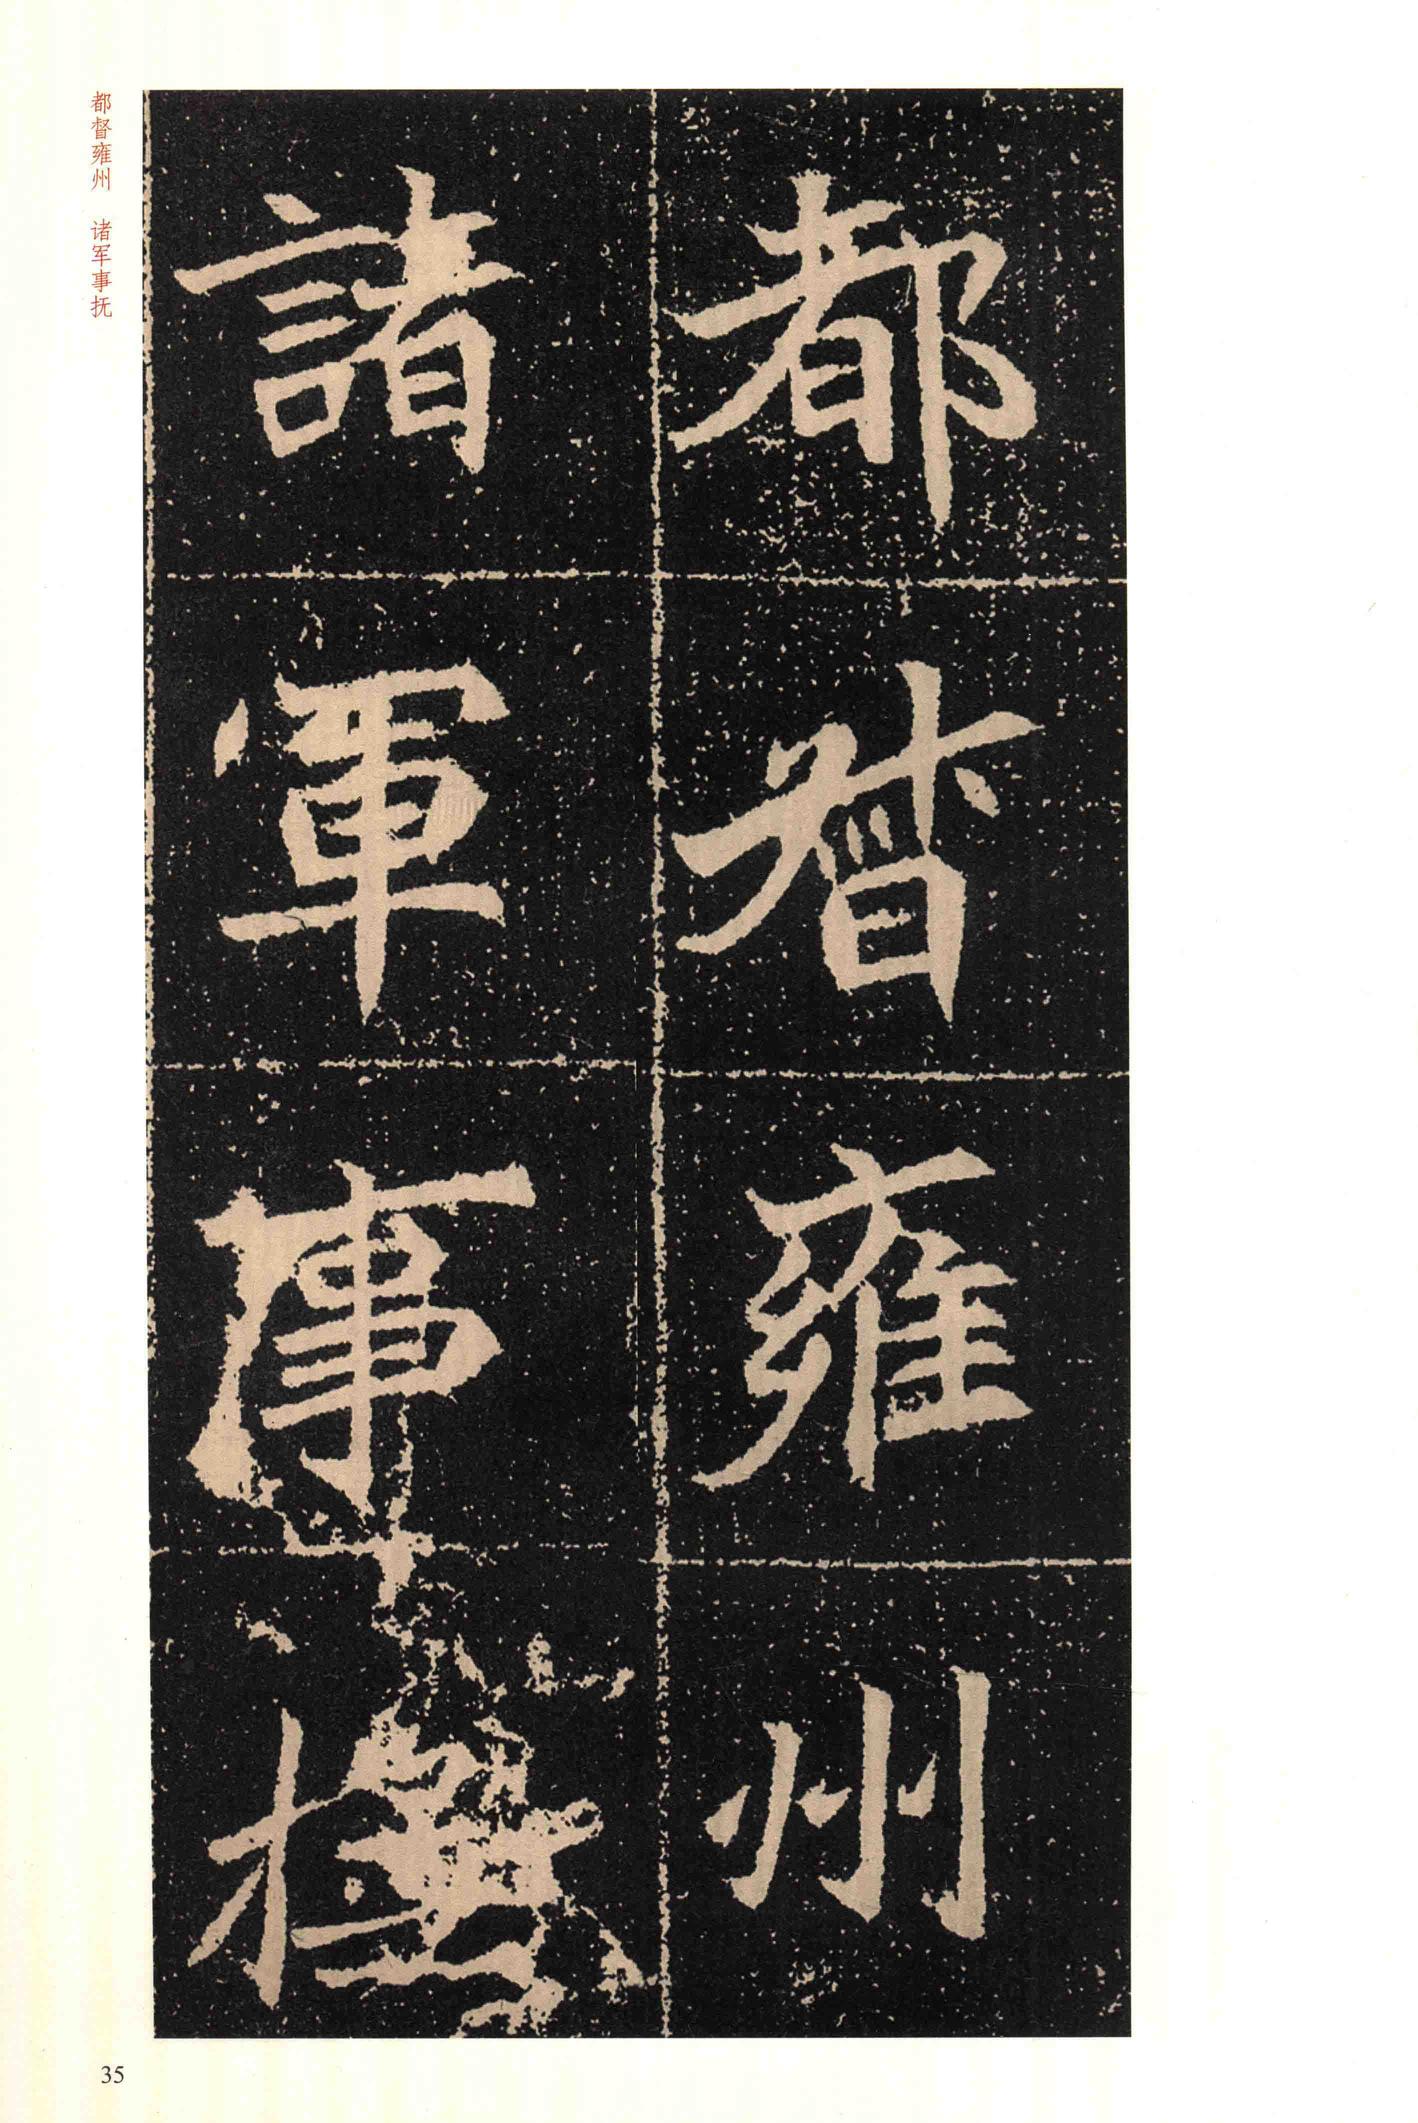 都督雍州
諸軍事撫
都督雍州 诸军事抚
35